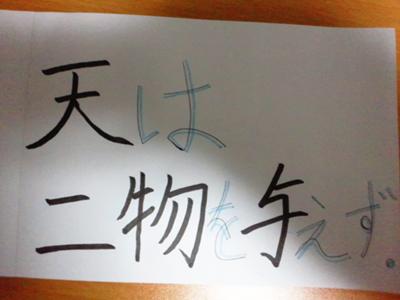 天は
二物を与えず。